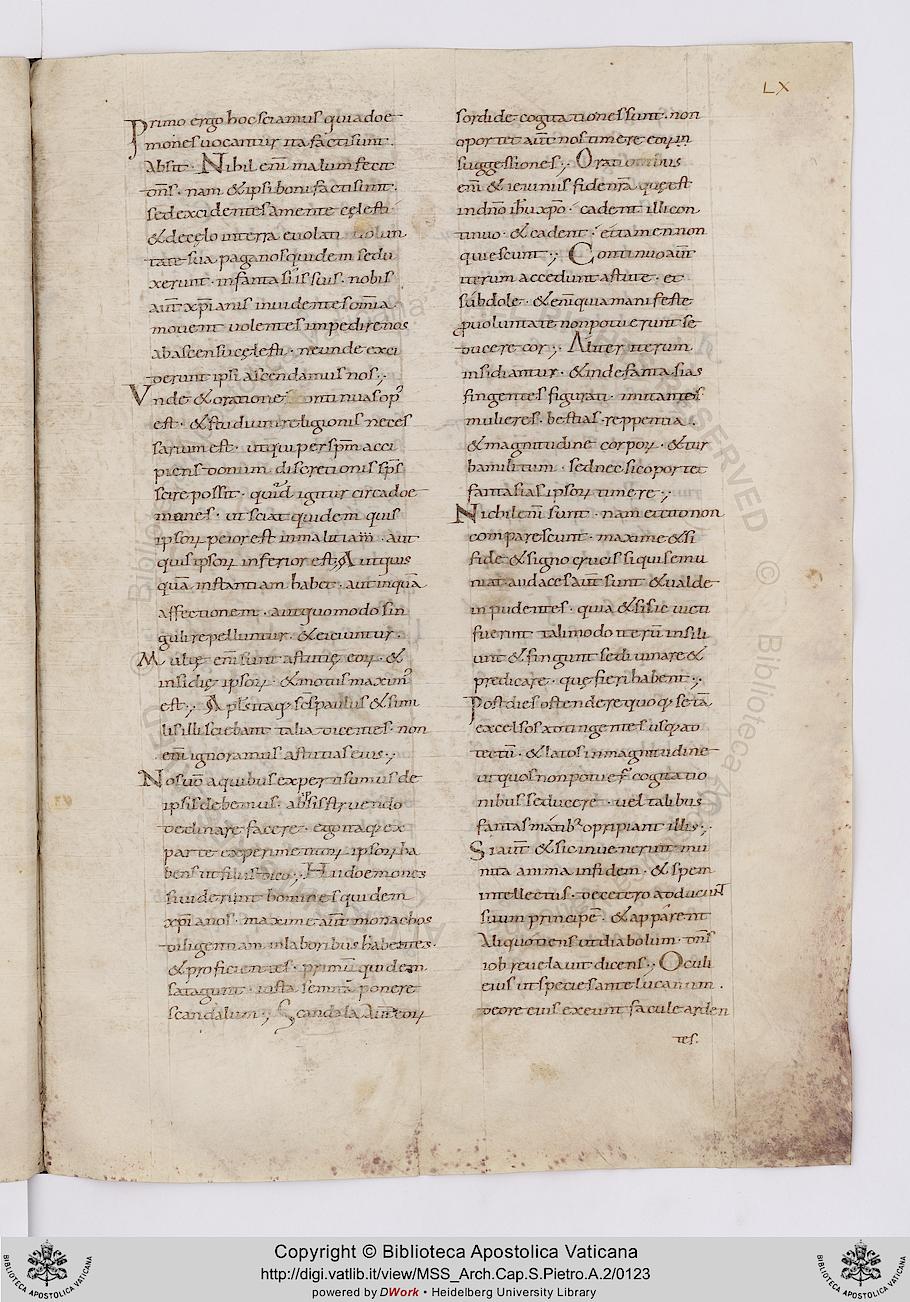 LX
Primo ergo hoc sciamus quia doe
mones uocantur ita facti sunt.
Absit. Nihil enī malum fecit
dn̄s. nam & ipsi boni facti sunt.
sed excidentes a mente cęlesti
& de cęlo in terra euolati uolun
tate sua paganos quidem sedu
xerunt. in fantasiis suis. nobis
aut̄ xp̄ianis inuidentes om̄ia
mouent uolentes impedire nos
ab ascensu cęlesti. ne unde exci
derunt ipsi ascendamus nos;
Vnde & oratione continua op
est. & studium religionis neces
sarium est. ut qui per sp̄m acci
piens donum discretionis sp̄s
scire possit. quid igitur circa doe
mones. ut sciat quidem quis
ipsoꝝ peior est in malitiam. aut
quis ipsoꝝ inferior est; Aut quis
quā instantiam habet. aut in quā
affectionem. aut quomodo sin
guli repelluntur. & eiciuntur.
Multę enī sunt astutię eoꝝ. &
insidię ipsoꝝ. & motus maxim
est; Apl's itaq; sc̄s paulus & simi
lis illi sciebant talia dicentes. non
enī ignoramus astutias eius;
Nos uō a quibus experti sumus de
ipsis debemus. ab ipsis struendo
declinare facere. ego itaq; ex
parte experimentoꝝ ipsoꝝ ha
bens ut filiis dico; Hii doemones
si uiderint homines quidem
xp̄ianos. maxime aut̄ monachos
diligentiam in laboribus habentes.
& proficientes. primū quidem
satagunt. iuxta semitā ponere
scandalum; Scandala aut̄ eoꝝ
sordide cogitationes sunt. non
oportet aut̄ nos timere eoꝝ in
suggessiones; Orationibus
enī & ieiuniis fide nr̄a quę est
in dn̄o ih̄u xp̄o. cadent illi con
tinuo. & cadent. et tamen non
quiescunt; Continuo aut̄
iterum accedunt astute. et
subdole. & enī quia manifeste
ꝓ uoluntate non potuerunt se
ducere cor; Aliter iterum
insidiantur. & inde fantasias
fingentes figurati. imitantes
mulieres. bestias. reppentia.
& magnitudine corpoꝝ. & tur
ba militum. sed nec sic oportet
fantasias ipsoꝝ timere;
Nichil enī sunt. nam et cito non
comparescunt. maxime & si
fide & signo crucis si quis se mu
niat. audaces aut̄ sunt & ualde
inpudentes. quia & si sic uicti
fuerint tali modo iterū insili
unt & fingunt se diuinare &
predicare. quę fieri habent;
Post dies ostendere quoq; se tā
excelsos adtingentes usq; ad
tectū. & latos in magnitudine
ut quos non potuer̄ cogitatio
nibus seducere. uel talibus
fantasmatib; opripiant illis;
Si aut̄ & sic inuenerint mu
nita anima in fidem. & spem
intellectus. de cetero adducunt
suum principē. & apparent
Aliquotiens ut diabolum. dn̄s
iob reuelauit dicens; Oculi
eius ut species ante lucanum.
de ore eius exeunt facule arden
tes.
Copyright © Biblioteca Apostolica Vaticana
http://digi.vatlib.it/view/MSS_Arch.Cap.S.Pietro.A.2/0123
powered by DWork • Heidelberg University Library
BIBLIOTECA APOSTOLICA VATICANA
BIBLIOTECA APOSTOLICA VATICANA